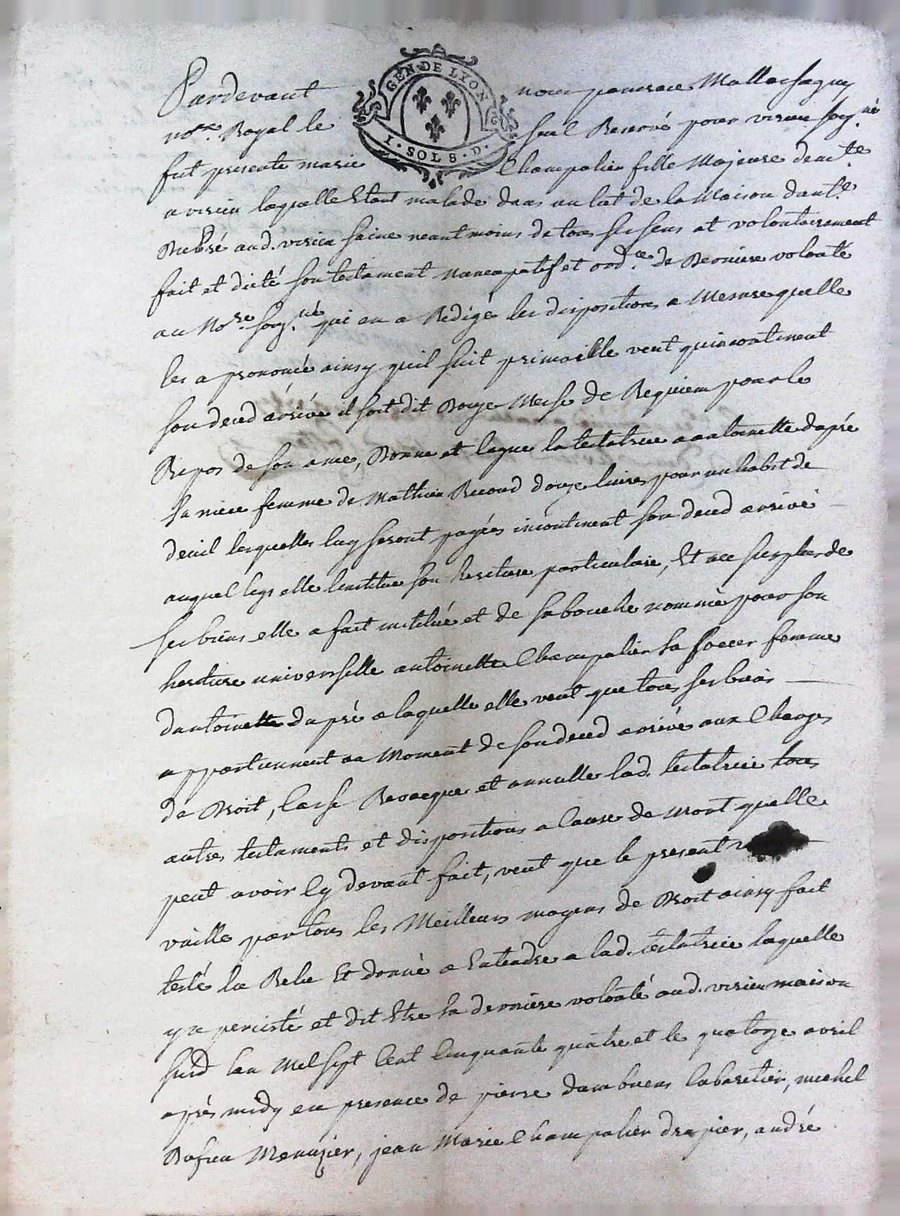 GEN. DE LYON
1. SOL 8. D.
Pardevant nous pancrace Mallassagny
no.re Royal le seul Renové pour virieu soug.né
fut presente marie Champalier fille Majeure dem.te
a virieu laquelle Etant malade dans un lit de la Maison dant.e
aud. virieu saine neantmoins de tous ses sens et volontairement
fait et dicté son testament nuncupatif et ord.re de Derniere volonté
au No.re soug.né qui en a Redigé les dispositions a Mesure quelle
les a prononcé ainsy quil suit primo elle veut quincontinent
son deced arrivé il soit dit Douze Messe de Requiem pour le
Repos de son ame, Donne et legue la testatrice a antoinette dapré
sa niece femme de Mathieu Recoud douze livres pour un habit de
deuil lesquelles luy seront payées incontinent son deced arrivé
auquel legs elle linstitue son heritiere particuliere, Et au surplus de
ses biens elle a fait institué et de sa bouche nommé pour son
heritiere universelle antoinette Champalier sa soeur femme
dantoinette dapré a laquelle elle veut que tous ses biens
appartiennent au Moment de son deced arrivé aux Charges
de Droit, Casse Revocque et annulle lad. testatrice tous
autres testaments et dispositions a Cause de mort quelle
peut avoir Cy devant fait, veut que le present
vaille par tous les Meilleurs moyens de Droit ainsy fait
testé lu Relu Et donné a Entendre a lad. testatrice laquelle
y a percisté et dit Etre sa derniere volonté aud. virieu maison
susd lan Mil sept Cent Cinquante quatre et le quatorze avril
après midy en presence de pierre dambuens Cabaretier, michel
Bafieu Menuizier, jean Marie Champalier drapier, andré